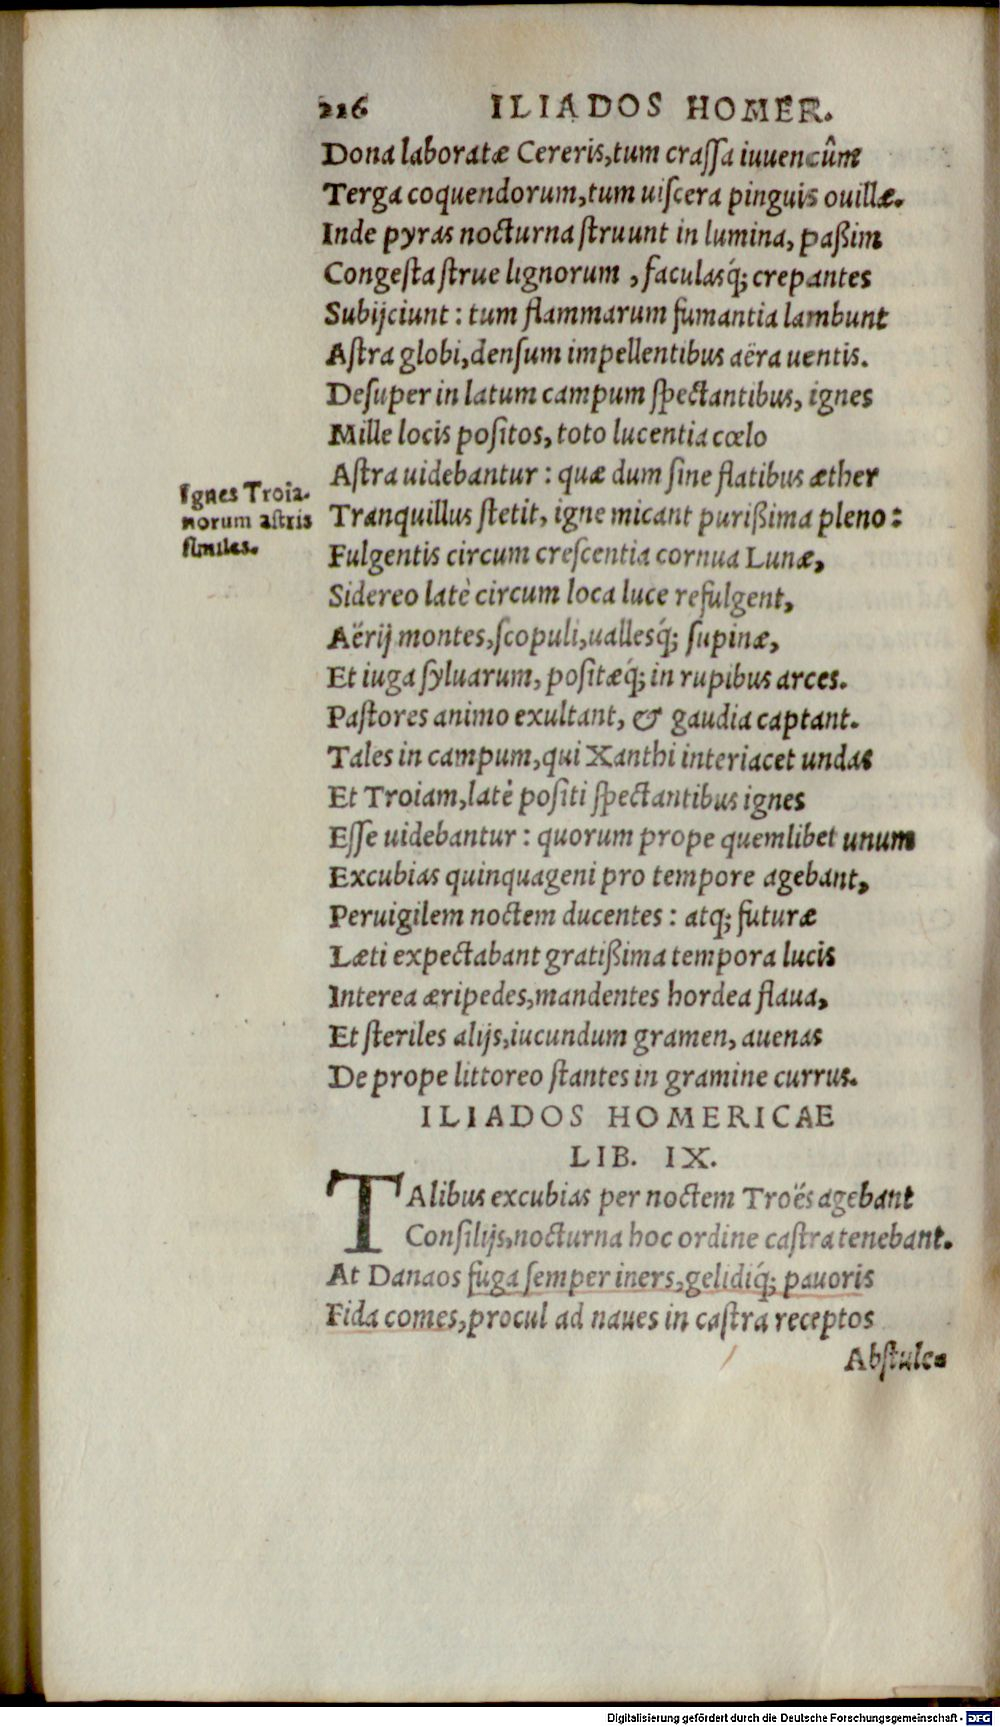 226 ILIADOS HOMER.
Dona laboratæ Cereris, tum craſſa iuuencûm
Terga coquendorum, tum uiſcera pinguis ouillæ.
Inde pyras nocturna ſtruunt in lumina, paßim
Congeſta ſtrue lignorum , faculasq́; crepantes
Subijciunt : tum flammarum fumantia lambunt
Aſtra globi, denſum impellentibus aëra uentis.
Deſuper in latum campum ſpectantibus, ignes
Mille locis poſitos, toto lucentia cœlo
Aſtra uidebantur : quæ dum ſine flatibus æther
Ignes Troia-
norum aſtris
ſimiles.
Tranquillus ſtetit, igne micant purißima pleno :
Fulgentis circum creſcentia cornua Lunæ,
Sidereo latè circum loca luce refulgent,
Aërij montes, ſcopuli, uallesq́; ſupinæ,
Et iuga ſyluarum, poſitæq́; in rupibus arces.
Paſtores animo exultant, & gaudia captant.
Tales in campum, qui Xanthi interiacet undas
Et Troiam, latè poſiti ſpectantibus ignes
Eſſe uidebantur : quorum prope quemlibet unum
Excubias quinquageni pro tempore agebant,
Peruigilem noctem ducentes : atq; futuræ
Læti expectabant gratißima tempora lucis
Interea æripedes, mandentes hordea flaua,
Et ſteriles alijs, iucundum gramen, auenas
De prope littoreo ſtantes in gramine currus.
ILIADOS HOMERICAE
LIB. IX.
TAlibus excubias per noctem Troës agebant
Conſilijs, nocturna hoc ordine caſtra tenebant.
At Danaos fuga ſemper iners, gelidiq́; pauoris
Fida comes, procul ad naues in caſtra receptos
Abſtule-
Digitalisierung gefördert durch die Deutsche Forschungsgemeinschaft - DFG